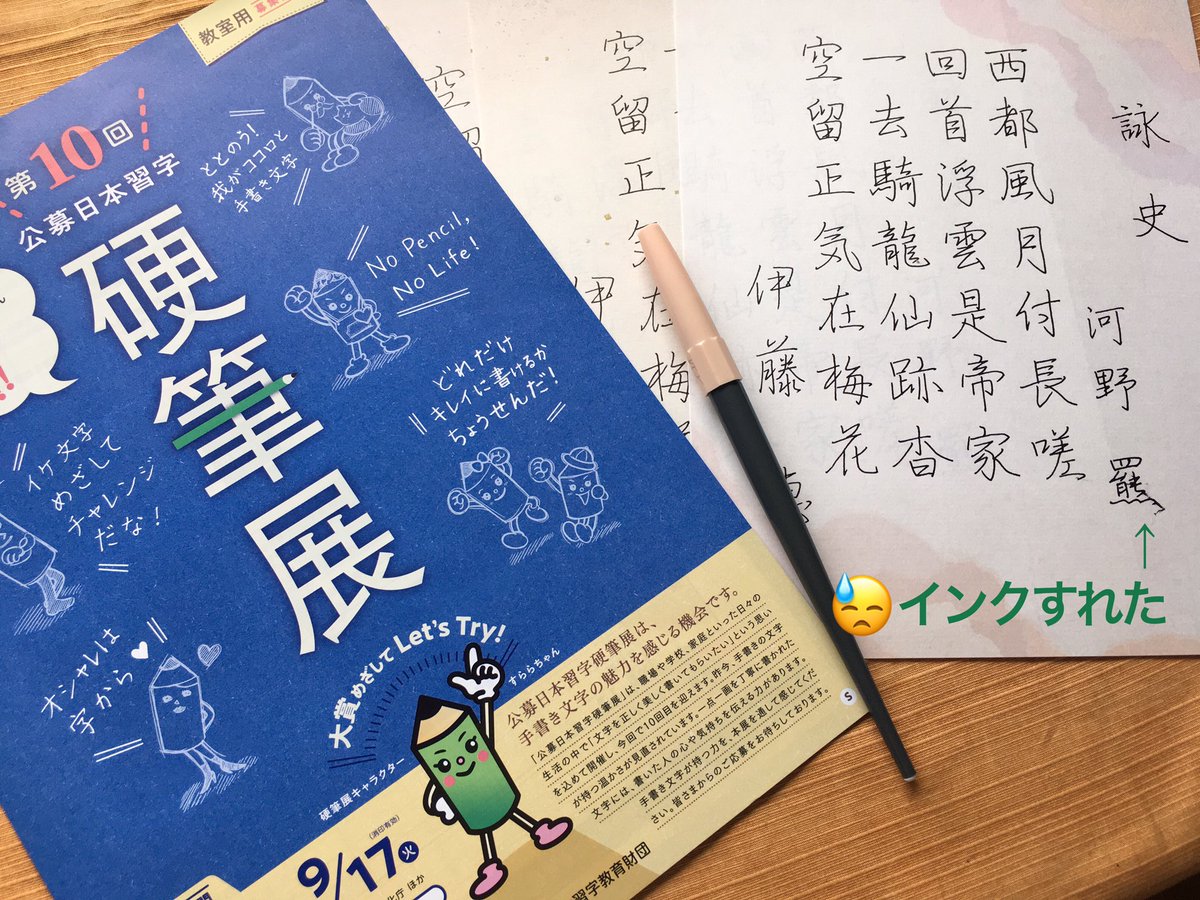 教室用
第10回
公募日本習字
硬筆展
ととのう!
我がココロと
手書き文字
No Pencil,
No Life!
どれだけ
キレイに書けるか
ちょうせんだ!
イケ文字
めざして
チャレンジ
だな!
オシャレは
字から
大賞めざして Let's Try!
すららちゃん
硬筆展キャラクター
公募日本習字硬筆展は、
手書き文字の魅力を感じる機会です。
「公募日本習字硬筆展」は、職場や学校、家庭といった日々の
生活の中で「文字を正しく美しく書いてもらいたい」という思い
を込めて開催し、今回で10回目を迎えます。昨今、手書きの文字
が持つ温かさが見直されています。一点一画を丁寧に書かれた
文字には、書いた人の心や気持ちを伝える力があります。
手書き文字が持つ力を、本展を通して感じてくだ
さい。皆さまからのご応募をお待ちしております。
S
9/17火
(消印有効)
ほか
習字教育財団
詠史 河野羆
西都風月付長嗟
回首浮雲是帝家
一去騎龍仙跡杳
空留正気在梅花
伊藤
空留正気在梅
伊
空留
↑
😓インクすれた